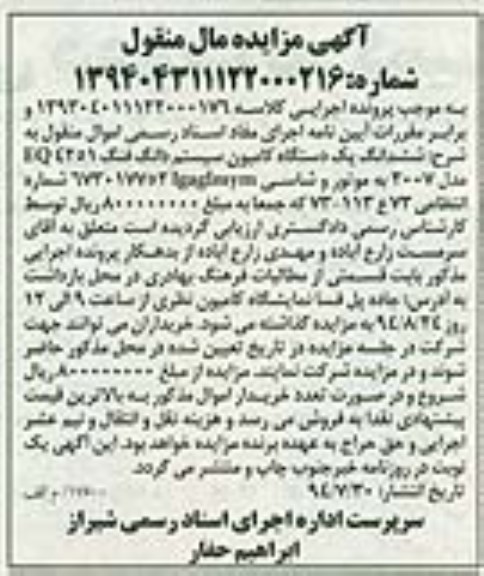 آگهی مزایده مال منقول
شماره: ۱۳۹۴۰۴۳۱۱۱۲۲۰۰۰۲۱۶
به موجب پرونده اجرایی کلاسه ۱۳۹۳۰۴۰۱۱۱۲۲۰۰۰۱۷۶ و
برابر مقررات آیین نامه اجرای مفاد اسناد رسمی اموال منقول به
شرح: ششدانگ یک دستگاه کامیون سیستم دانگ فنگ EQ ۴۲۵۱
مدل ۲۰۰۷ به موتور و شاسی شماره
انتظامی ۷۳ ع ۱۱۳-۷۳ که جمعا به مبلغ ۸۰۰۰۰۰۰۰۰ ریال توسط
کارشناس رسمی دادگستری ارزیابی گردیده است متعلق به آقای
سرمست زارع آباده و مهدی زارع آباده از بدهکار پرونده اجرایی
مذکور بابت قسمتی از مطالبات فرهنگ بهادری در محل بازداشت
به آدرس: جاده پل فسا نمایشگاه کامیون نظری از ساعت ۹ الی ۱۲
روز ۹۴/۸/۲۴ به مزایده گذاشته می شود. خریداران می توانند جهت
شرکت در جلسه مزایده در تاریخ تعیین شده در محل مذکور حاضر
شوند و در مزایده شرکت نمایند. مزایده از مبلغ ۸۰۰۰۰۰۰۰۰ ریال
شروع و در صورت تعدد خریدار اموال مذکور به بالاترین قیمت
پیشنهادی نقدا به فروش می رسد و هزینه نقل و انتقال و نیم عشر
اجرایی و حق حراج به عهده برنده مزایده خواهد بود. این آگهی یک
نوبت در روزنامه خبرجنوب چاپ و منتشر می گردد.
تاریخ انتشار: ۹۴/۷/۳۰ م الف
سرپرست اداره اجرای اسناد رسمی شیراز
ابراهیم حفار